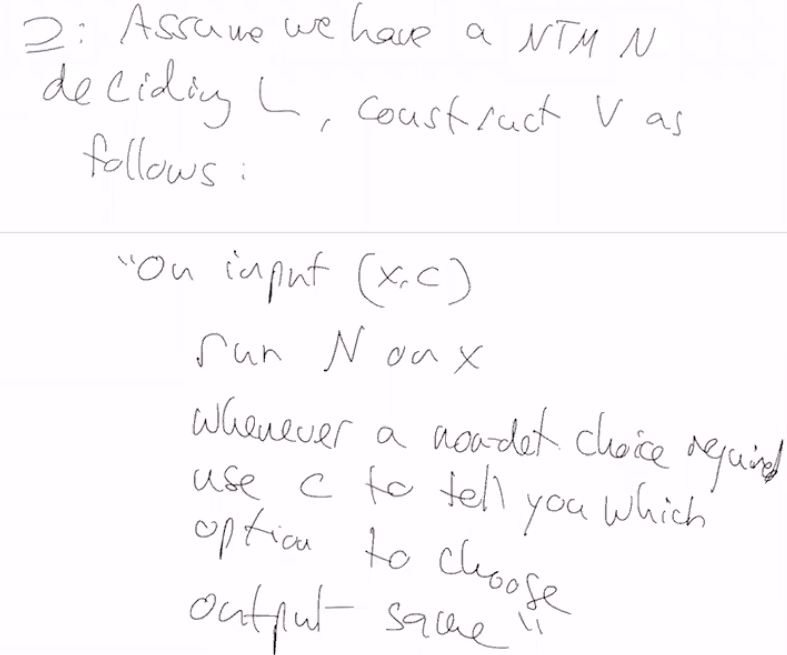 2: Assume we have a NTM N
deciding L, construct V as
follows:
"On input (x,c)
run N on x
whenever a non-det choice required
use c to tell you which
option to choose
output same"